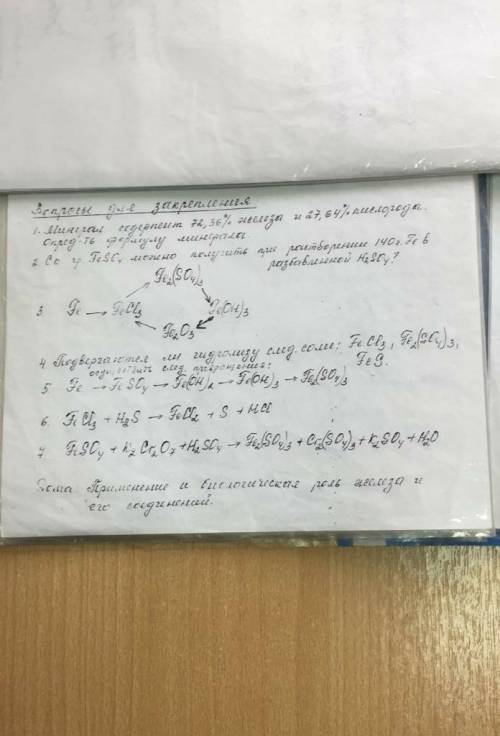 Вопросы для закрепления
1. Минерал содержит 72,36% железа и 27,64% кислорода.
Опред-ть формулу минерала.
2. Ск. гр. FeSO₄ можно получить при растворении 140 г. Fe в
разбавленной H₂SO₄?
Fe₂(SO₄)₃
3 Fe → FeCl₃ Fe(OH)₃
Fe₂O₃
4 Подвергаются ли гидролизу след. соли: FeCl₃, Fe₂(SO₄)₃,
FeS.
осуществить след. превращения:
5. Fe → FeSO₄ → Fe(OH)₂ → Fe(OH)₃ → Fe₂(SO₄)₃
6. FeCl₃ + H₂S → FeCl₂ + S + HCl
7. FeSO₄ + K₂Cr₂O₇ + H₂SO₄ → Fe₂(SO₄)₃ + Cr₂(SO₄)₃ + K₂SO₄ + H₂O
Дома Применение и биологическая роль железа и
его соединений.